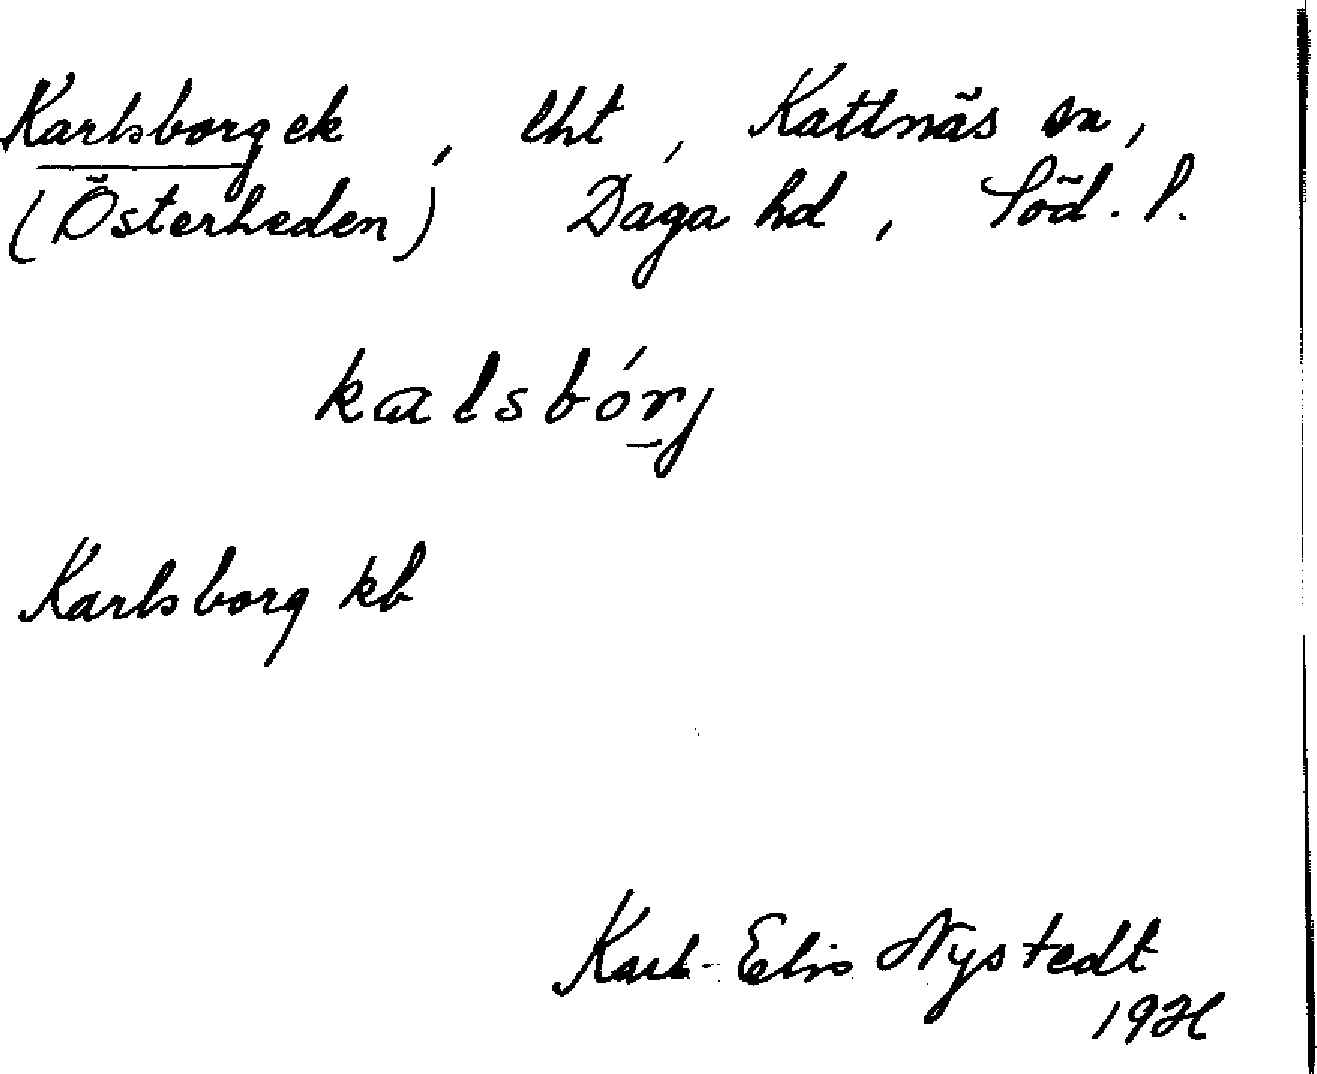 Karlsborg ek, lht, Kattnäs sn,
(Österheden) Daga hd, Söd. l.
kalsbórj
Karlsborg kb
Karl-Elis Nystedt